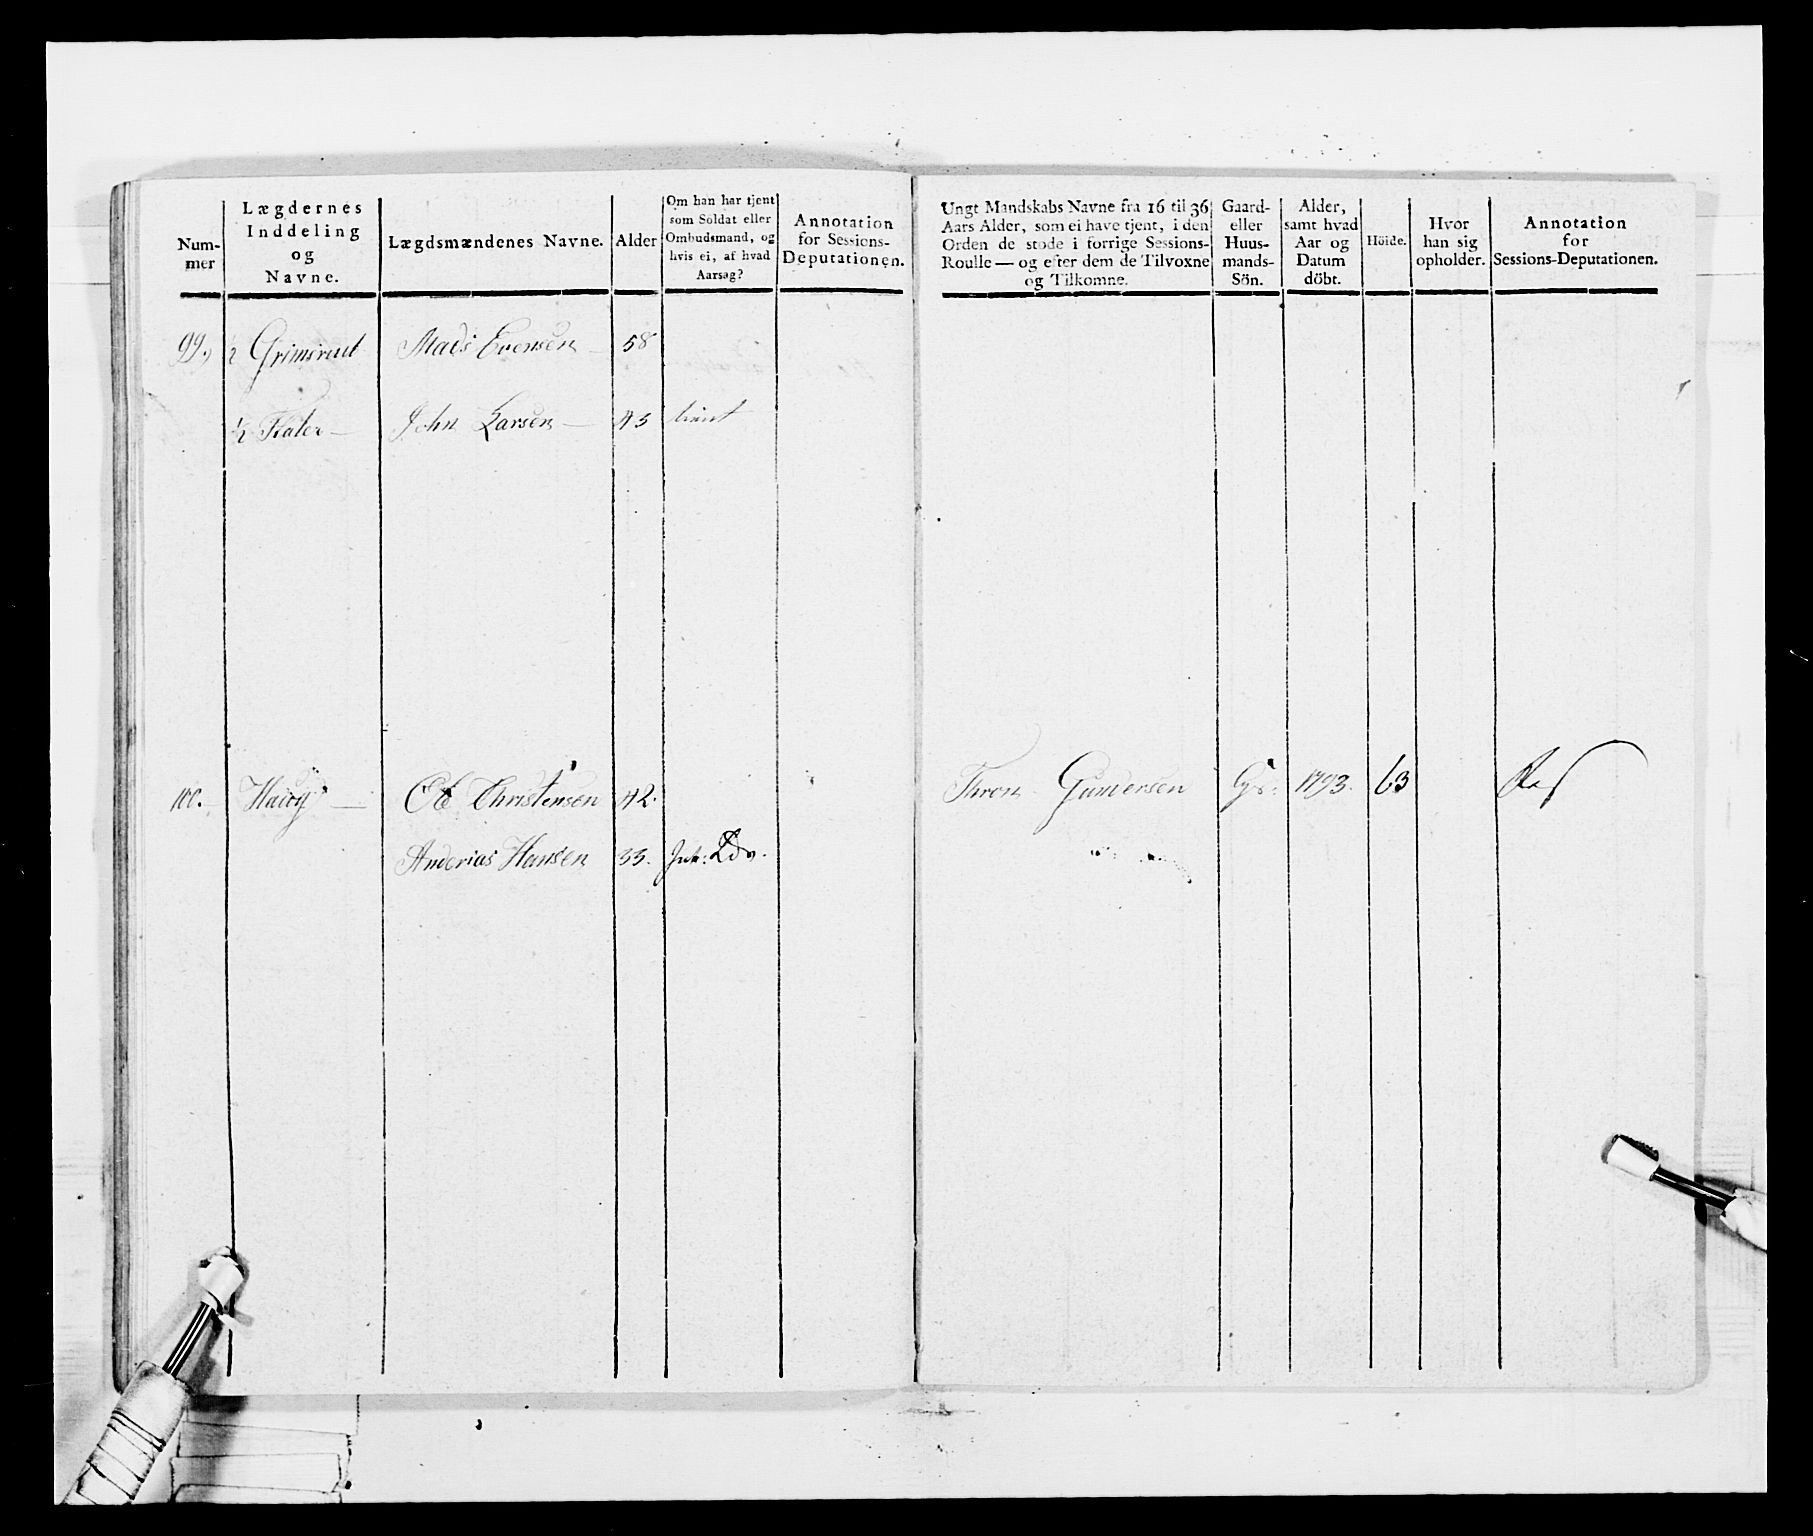 Num-
mer
Lægdernes
Inddeling
og
Navne.
Lægdsmændenes Navne.
Alder
Om han har tjent
som Soldat eller
Ombudsmand, og
hvis ei, af hvad
Aarsag?
Annotation
for Sessions-
Deputationen.
99.) ½ Grimsrud Mads Evensen 58
½ Flater John Larsen 43 tient
100. Houg Ole Christensen 42.
Anderias Hansen 33.
Ungt Mandskabs Navne fra 16 til 36
Aars Alder, som ei have tjent, i den
Orden de stode i forrige Sessions-
Roulle — og efter dem de Tilvoxne
og Tilkomne.
Gaard-
eller
Huus-
mands-
Sön.
Alder,
samt hvad
Aar og
Datum
döbt.
Höide.
Hvor
han sig
opholder.
Annotation
for
Sessions-Deputationen.
Thron Gundersen Gs. 1793. 63